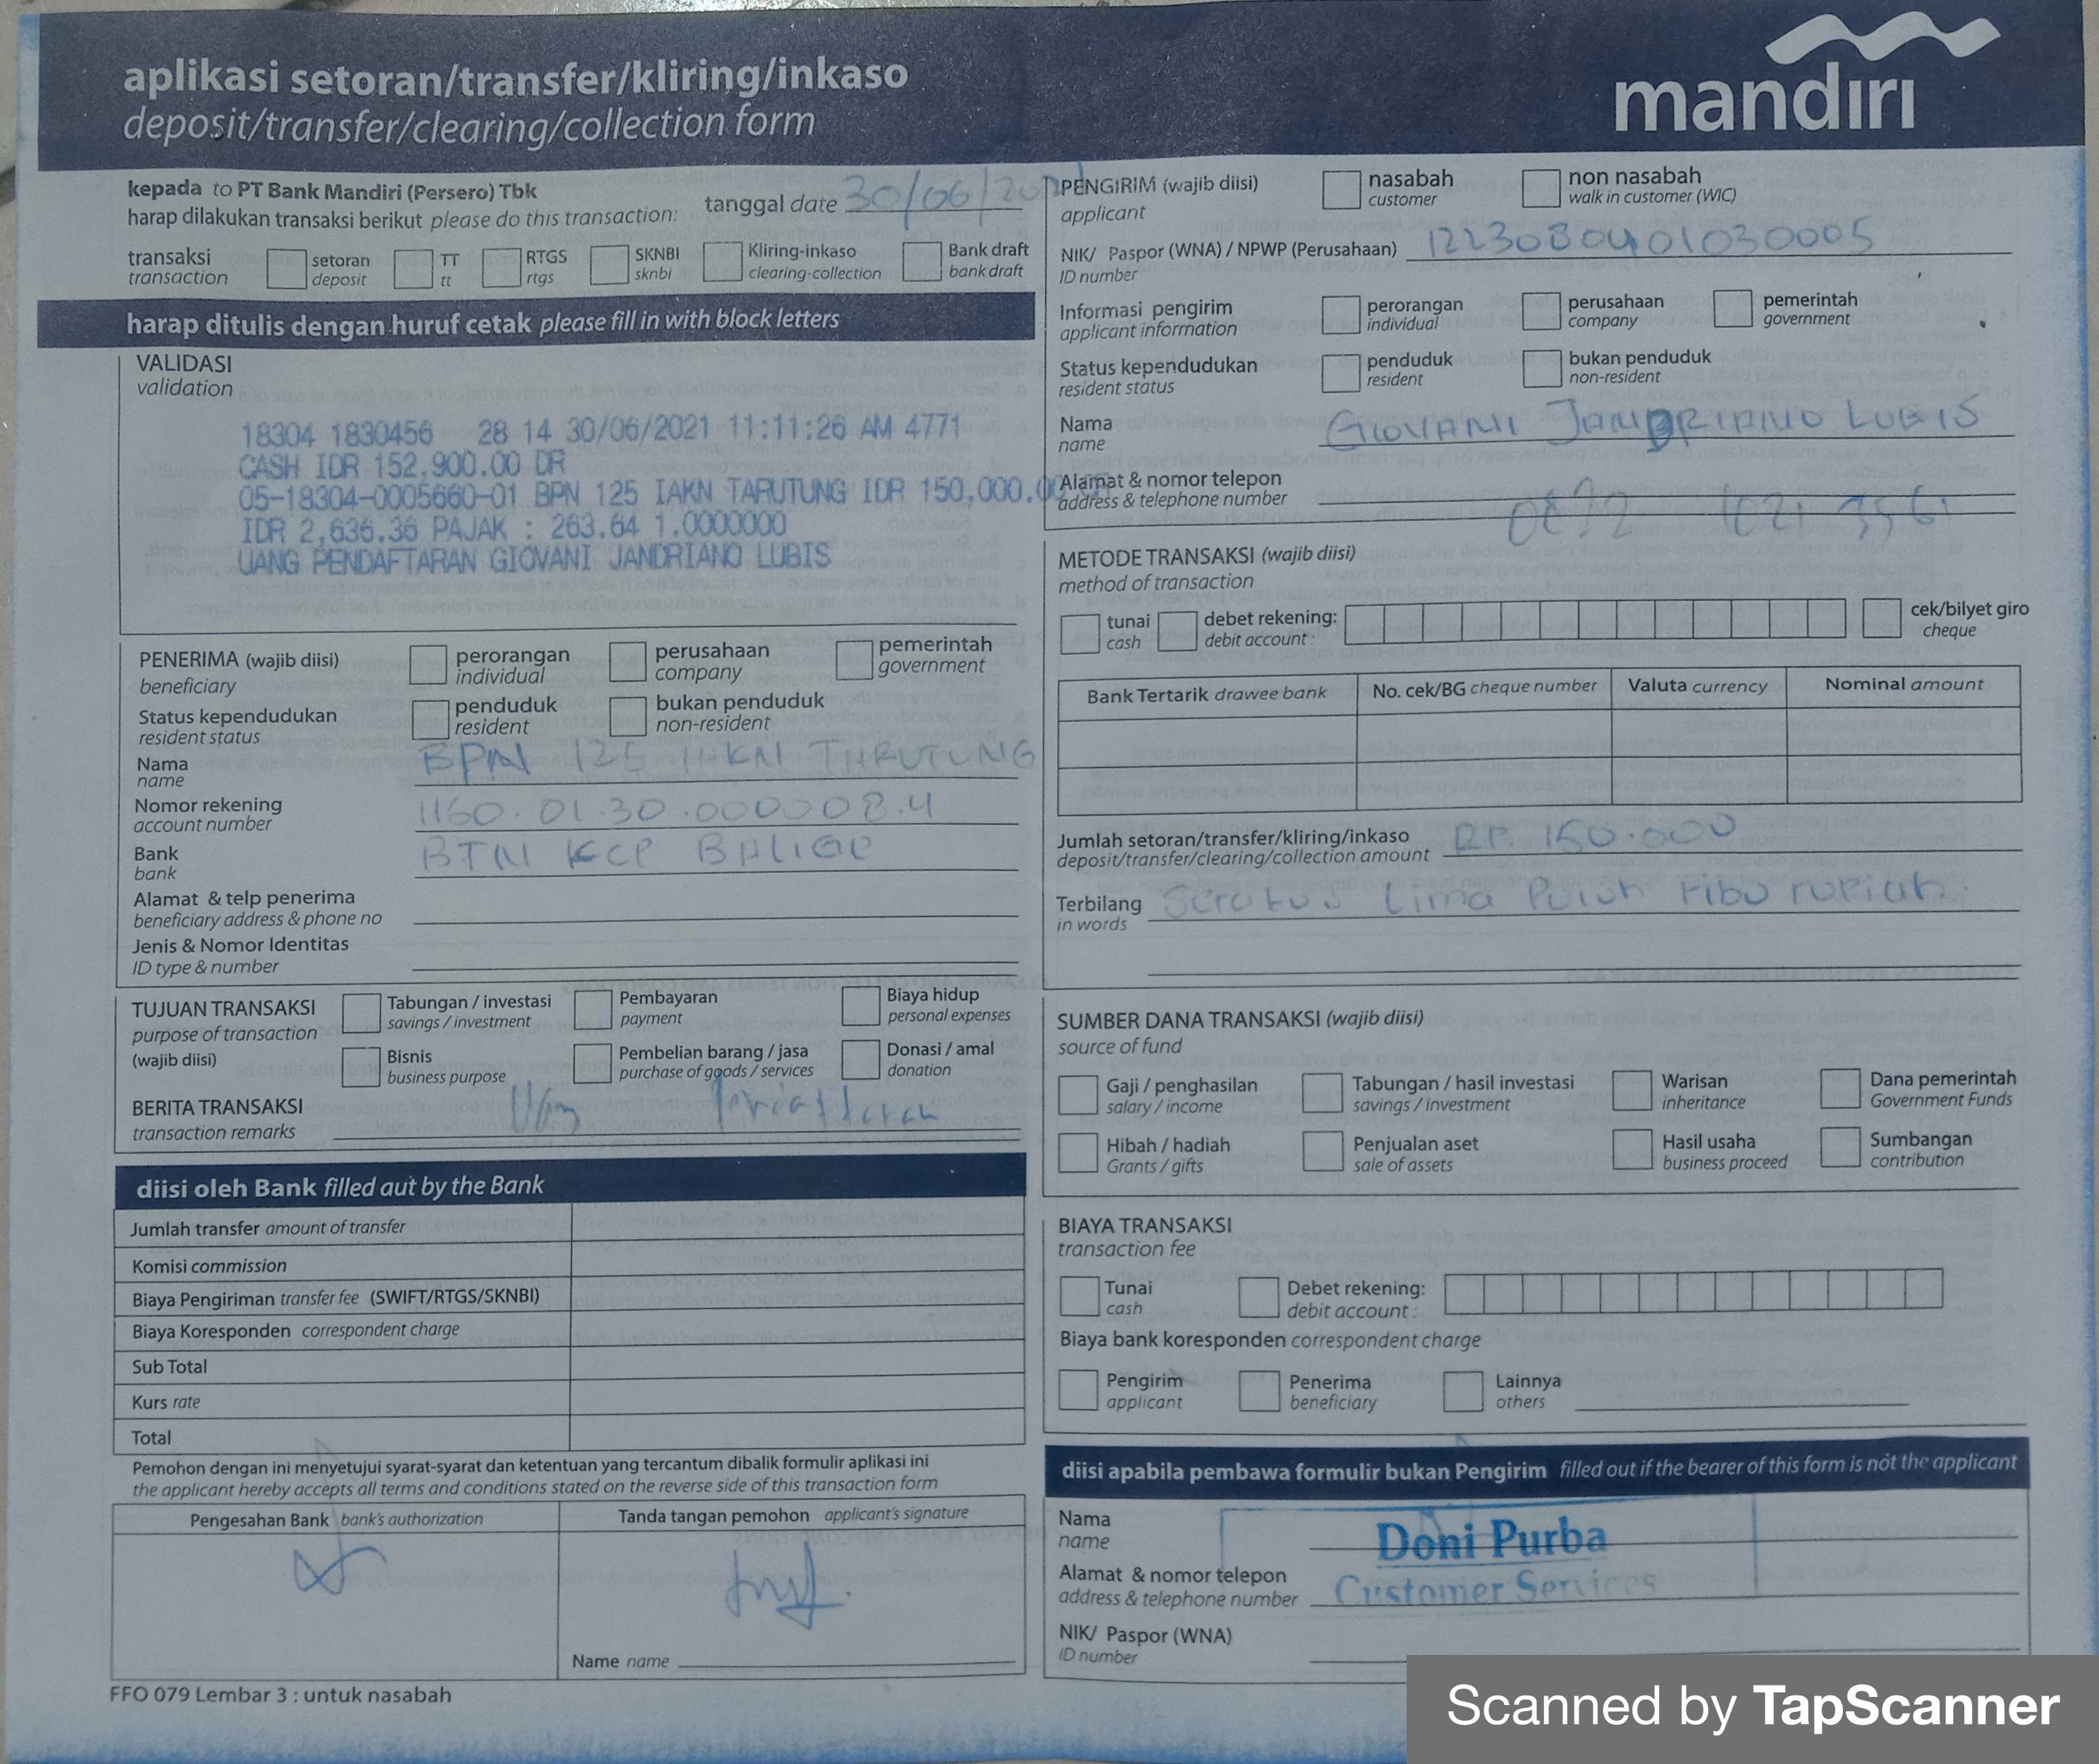 aplikasi setoran/transfer/kliring/inkaso
deposit/transfer/clearing/collection form
mandırı
kepada to PT Bank Mandiri (Persero) Tbk
harap dilakukan transaksi berikut please do this transaction:
tanggal date 30/06/
transaksi transaction
setoran deposit
TT tt
RTGS rtgs
SKNBI sknbi
Kliring-inkaso clearing-collection
Bank draft bank draft
harap ditulis dengan huruf cetak please fill in with block letters
VALIDASI
validation
18304 1830456 28 14 30/06/2021 11:11:26 AM 4771
CASH IDR 152,900.00 DR
05-18304-0005660-01 BPN 125 IAKN TARUTUNG IDR 150,000.00
IDR 2,636.36 PAJAK : 263.64 1.0000000
UANG PENDAFTARAN GIOVANI JANDRIANO LUBIS
PENERIMA (wajib diisi)
beneficiary
perorangan individual
perusahaan company
pemerintah government
Status kependudukan
resident status
penduduk resident
bukan penduduk non-resident
Nama BPN 125 IAKN TARUTUNG
name
Nomor rekening 1160.01.30.000008.4
account number
Bank BTN KCP BALIGE
bank
Alamat & telp penerima
beneficiary address & phone no
Jenis & Nomor Identitas
ID type & number
TUJUAN TRANSAKSI
purpose of transaction
(wajib diisi)
Tabungan / investasi savings / investment
Pembayaran payment
Biaya hidup personal expenses
Bisnis business purpose
Pembelian barang / jasa purchase of goods / services
Donasi / amal donation
BERITA TRANSAKSI
transaction remarks
diisi oleh Bank filled aut by the Bank
Jumlah transfer amount of transfer
Komisi commission
Biaya Pengiriman transfer fee (SWIFT/RTGS/SKNBI)
Biaya Koresponden correspondent charge
Sub Total
Kurs rate
Total
Pemohon dengan ini menyetujui syarat-syarat dan ketentuan yang tercantum dibalik formulir aplikasi ini
the applicant hereby accepts all terms and conditions stated on the reverse side of this transaction form
Pengesahan Bank bank's authorization
Tanda tangan pemohon applicant's signature
Name name
FFO 079 Lembar 3 : untuk nasabah
PENGIRIM (wajib diisi)
applicant
nasabah customer
non nasabah walk in customer (WIC)
NIK/ Paspor (WNA) / NPWP (Perusahaan) 1223080401030005
ID number
Informasi pengirim
applicant information
perorangan individual
perusahaan company
pemerintah government
Status kependudukan
resident status
penduduk resident
bukan penduduk non-resident
Nama GIOVANI JANDRIANO LUBIS
name
Alamat & nomor telepon
address & telephone number
METODE TRANSAKSI (wajib diisi)
method of transaction
tunai cash
debet rekening: debit account :
cek/bilyet giro cheque
Bank Tertarik drawee bank
No. cek/BG cheque number
Valuta currency
Nominal amount
Jumlah setoran/transfer/kliring/inkaso RP. 150.000
deposit/transfer/clearing/collection amount
Terbilang Seratus Lima Puluh ribu rupiah.
in words
SUMBER DANA TRANSAKSI (wajib diisi)
source of fund
Gaji / penghasilan salary / income
Tabungan / hasil investasi savings / investment
Warisan inheritance
Dana pemerintah Government Funds
Hibah / hadiah Grants / gifts
Penjualan aset sale of assets
Hasil usaha business proceed
Sumbangan contribution
BIAYA TRANSAKSI
transaction fee
Tunai cash
Debet rekening: debit account :
Biaya bank koresponden correspondent charge
Pengirim applicant
Penerima beneficiary
Lainnya others
diisi apabila pembawa formulir bukan Pengirim filled out if the bearer of this form is not the applicant
Nama Doni Purba
name
Alamat & nomor telepon Customer Services
address & telephone number
NIK/ Paspor (WNA)
ID number
Scanned by TapScanner